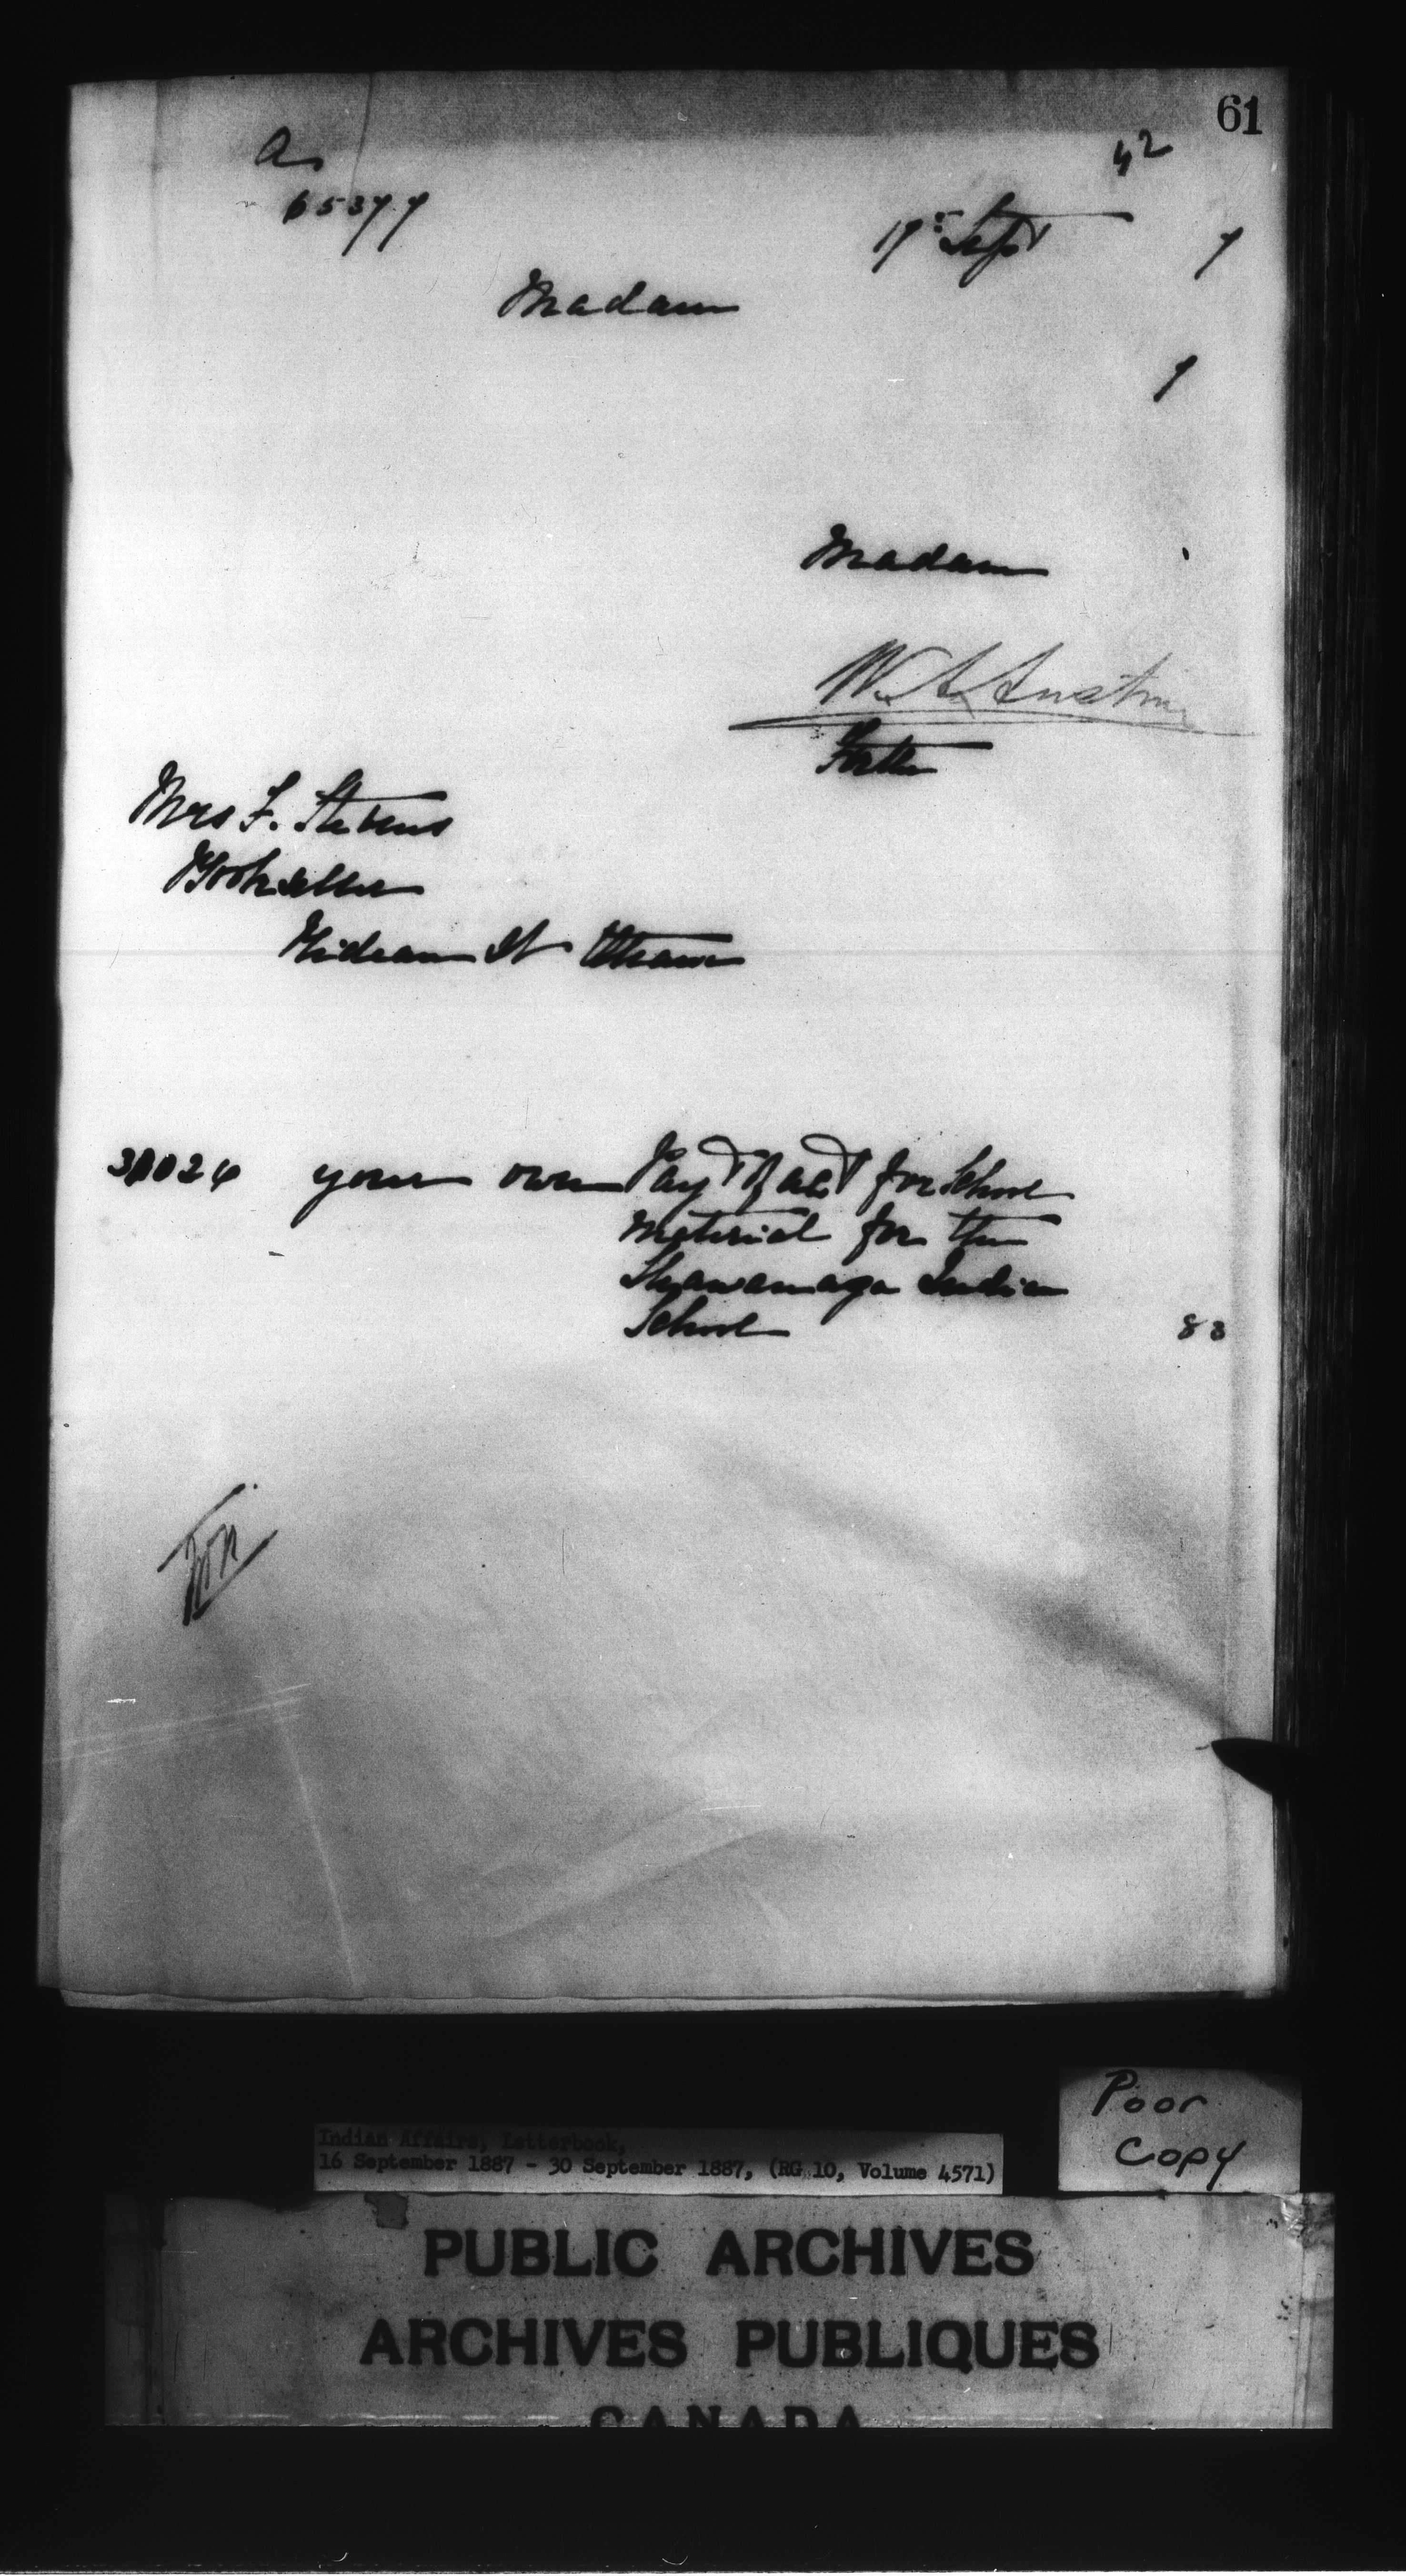 61
42
a
65377
17th Sept 7
Madam
1
Madam
W. A. Austin
For the
Mrs F. Stevens
Bookseller
Rideau St Ottawa
your own Pay't of acct for School
material for the
Shawanaga Indian
School 83
Poor
Copy
Indian Affairs, Letterbook,
16 September 1887 - 30 September 1887, (RG 10, Volume 4571)
PUBLIC ARCHIVES
ARCHIVES PUBLIQUES
CANADA